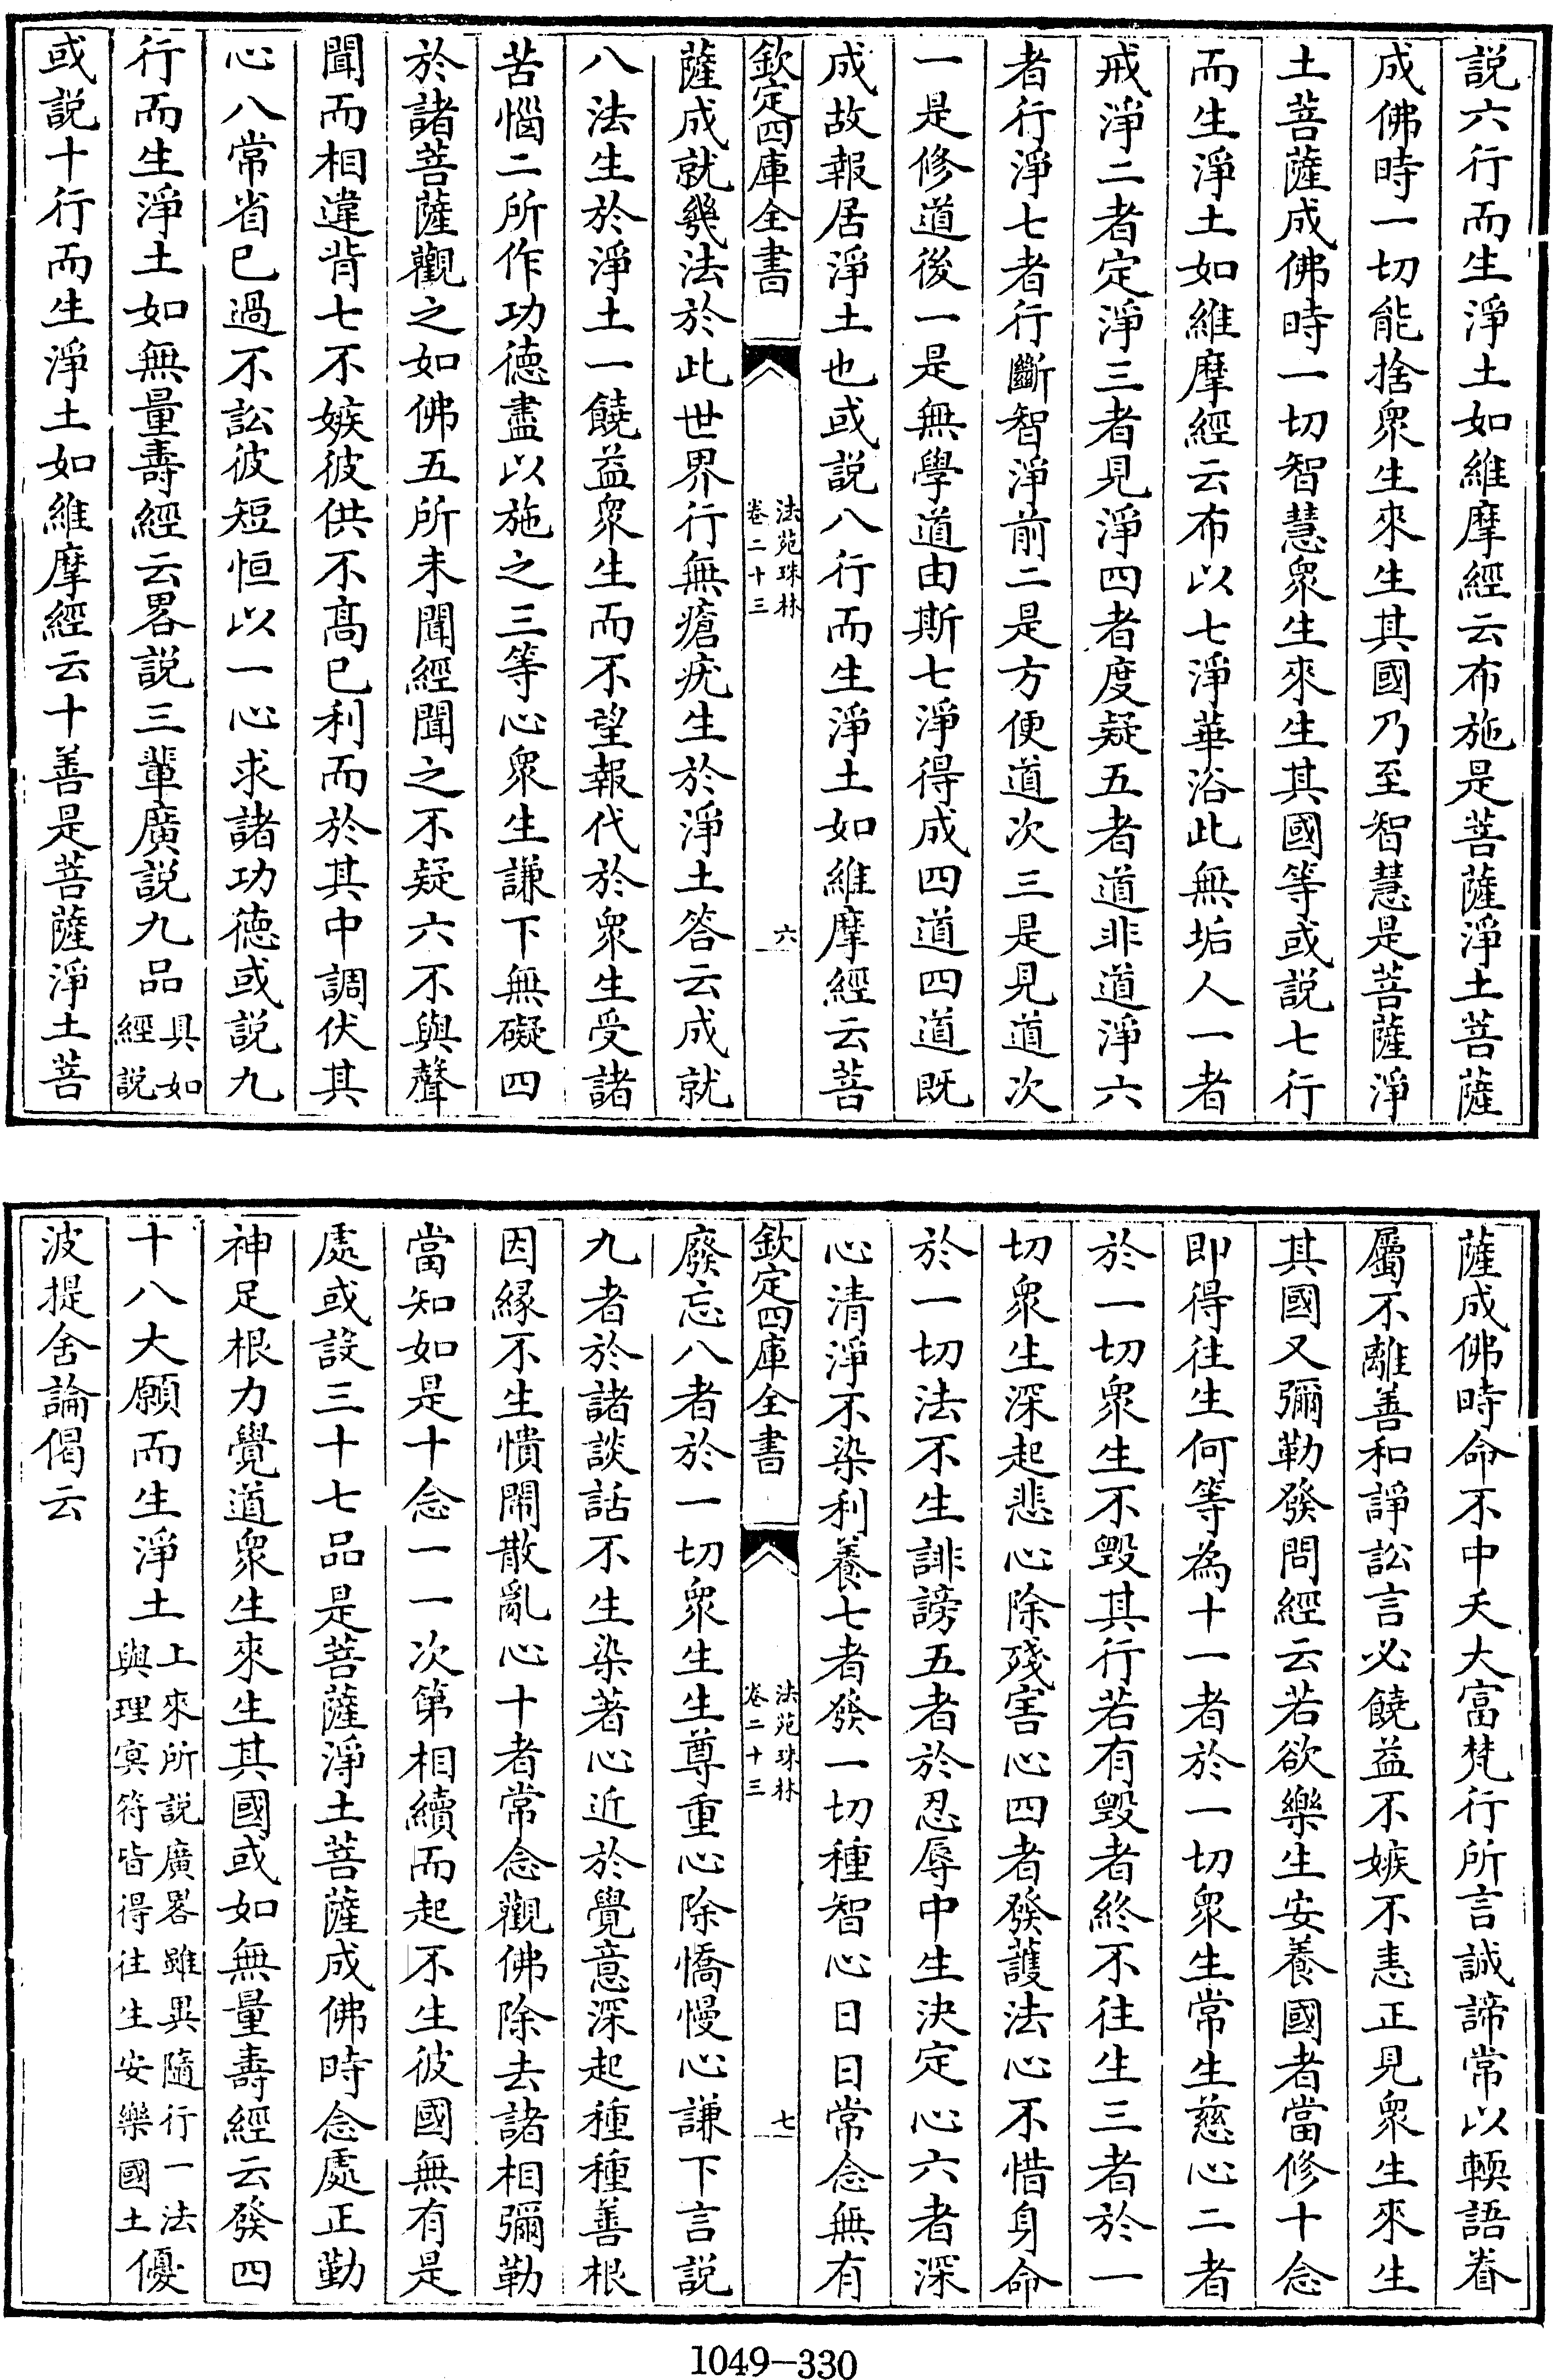 説六行而生淨土如維摩經云布施是菩薩淨土菩薩
成佛時一切能捨衆生來生其國乃至智慧是菩薩淨
土菩薩成佛時一切智慧衆生來生其國等或説七行
而生淨土如維摩經云布以七淨華浴此無垢人一者
戒淨二者定淨三者見淨四者度疑五者道非道淨六
者行淨七者行斷智淨前二是方便道次三是見道次
一是修道後一是無學道由斯七淨得成四道四道既
成故報居淨土也或説八行而生淨土如維摩經云菩
欽定四庫全書
法苑珠林
卷二十三
六
薩成就幾法於此世界行無瘡疣生於淨土答云成就
八法生於淨土一饒益衆生而不望報代於衆生受諸
苦惱二所作功德盡以施之三等心衆生謙下無礙四
於諸菩薩觀之如佛五所未聞經聞之不疑六不與聲
聞而相違背七不嫉彼供不高已利而於其中調伏其
心八常省已過不訟彼短恒以一心求諸功徳或説九
行而生淨土如無量壽經云畧説三輩廣説九品具如
經説
或説十行而生淨土如維摩經云十善是菩薩淨土菩
薩成佛時命不中夭大富梵行所言誠諦常以輭語眷
屬不離善和諍訟言必饒益不嫉不恚正見衆生來生
其國又彌勒發問經云若欲樂生安養國者當修十念
即得往生何等為十一者於一切衆生常生慈心二者
於一切衆生不毀其行若有毀者終不往生三者於一
切衆生深起悲心除殘害心四者發護法心不惜身命
於一切法不生誹謗五者於忍辱中生決定心六者深
心清淨不染利養七者發一切種智心日日常念無有
欽定四庫全書
法苑珠林
卷二十三
七
廢忘八者於一切衆生生尊重心除憍慢心謙下言説
九者於諸談話不生染著心近於覺意深起種種善根
因緣不生憒閙散亂心十者常念觀佛除去諸相彌勒
當知如是十念一一次第相續而起不生彼國無有是
處或設三十七品是菩薩淨土菩薩成佛時念處正勤
神足根力覺道衆生來生其國或如無量壽經云發四
十八大願而生淨土上來所説廣畧雖異隨行一法
與理寘符皆得往生安樂國土優
波提舍論偈云
1049-330